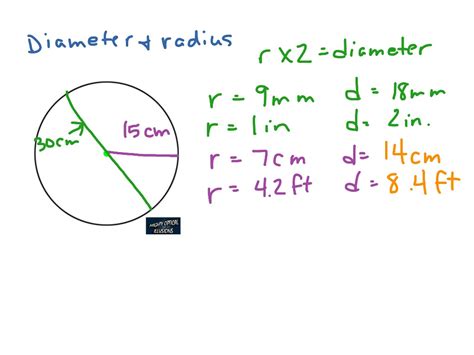 Diameter & radius
r x 2 = diameter
r = 9mm d = 18mm
r = 1in d = 2in.
r = 7cm d = 14cm
r = 4.2ft d = 8.4ft
15cm
30cm
MIGHTY OPTICAL
ILLUSIONS